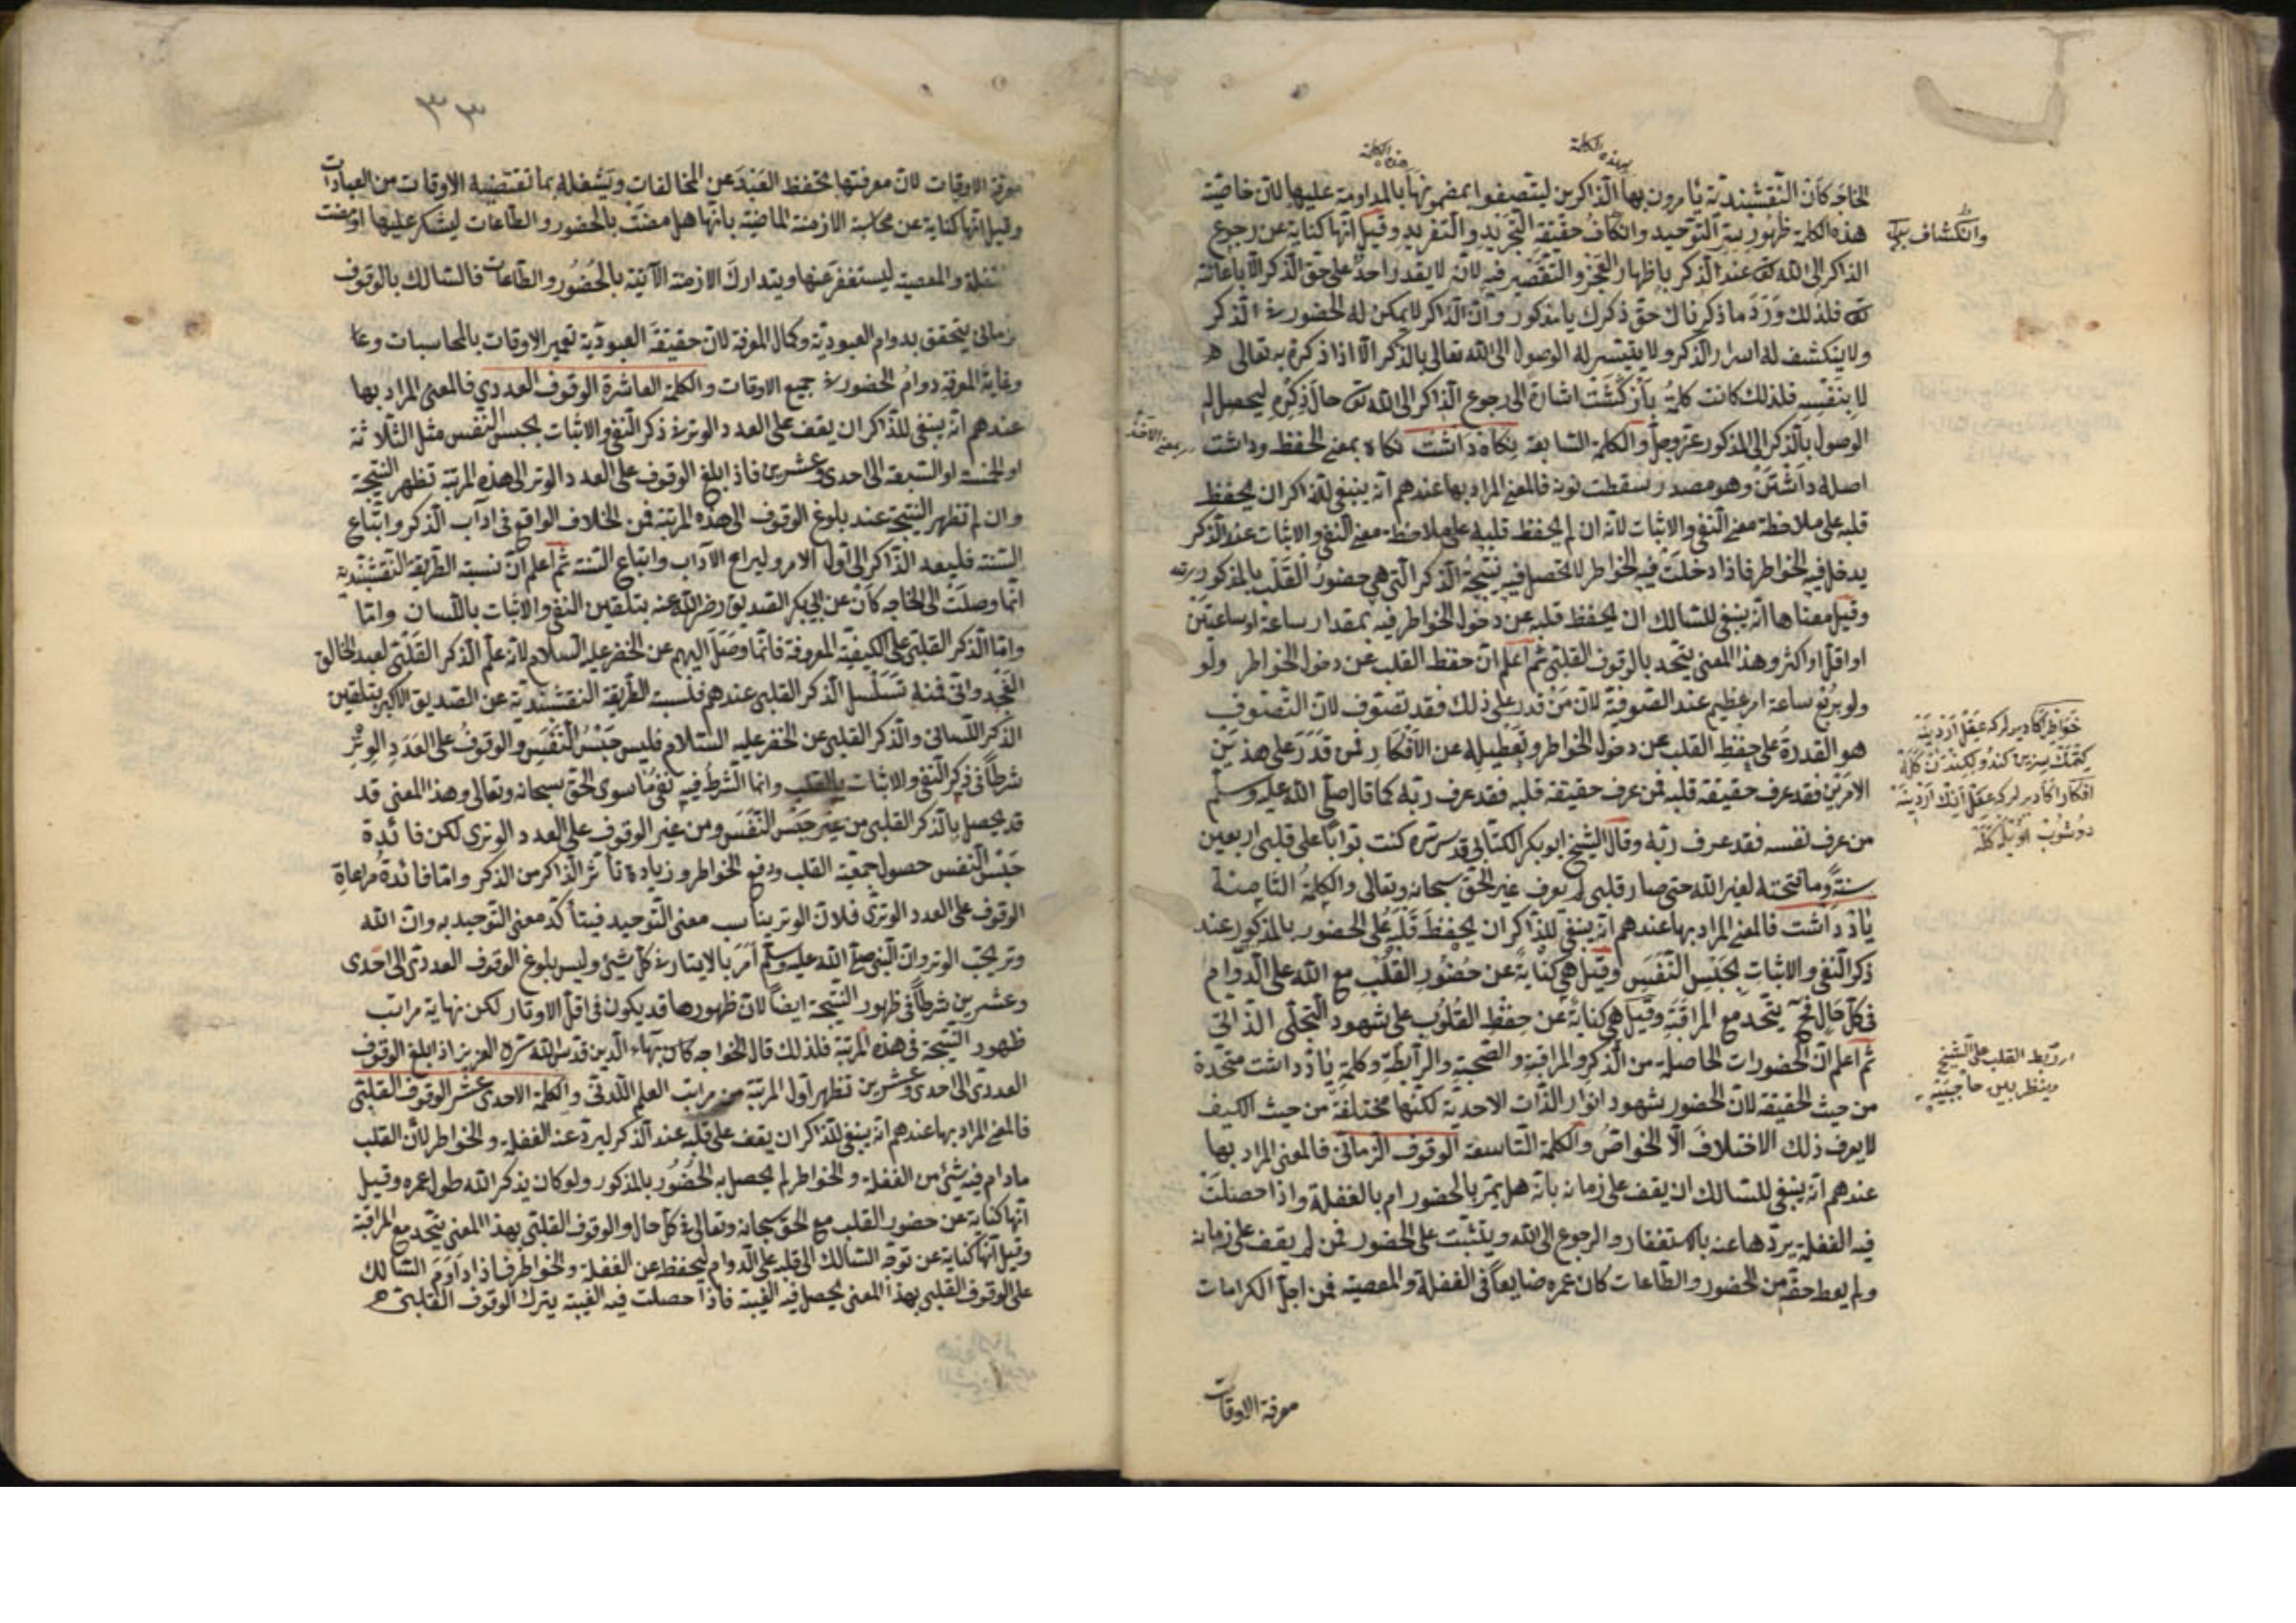 بهذه الكلمة
هذه الكلمة
الخاجه كان النقشبندية يأمرون بها الذاكرين ليتصفوا بمضمونها بالمداومة عليها لان خاصية
هذه الكلمة ظهور سر التوحيد وانكاف حقيقة التجريد والتفريد وقيل انها كناية عن رجوع
وانكشاف
الذاكر الى الله تع عند الذكر باظهار العجز والتقصير فيه لانه لا يقدر احد على حق الذكر الا باعانة
تع فلذلك ورد ما ذكرناك حق ذكرك يا مذكور وان الذاكر لا يمكن له الحضور في الذكر
ولا ينكشف له اسرار الذكر ولا يتيسر له الوصول الى الله تعالى بالذكر الا اذا ذكره به تعالى
لا بنفسه فلذلك كانت كلمة بازكشت اشارة الى رجوع الذاكر الى الله تع حال ذكره ليحصل له
الوصول بالذكر الى المذكور عز وجل والكلمة السابعة نكاه داشت نكاه بمعنى الحفظ وداشت
اصله داشتن وهو مصدر وسقطت نونه فالمعنى المراد بها عندهم انه ينبغي للذاكر ان يحفظ
قلبه على ملاحظة معنى النفي والاثبات لانه ان لم يحفظ قلبه على ملاحظة معنى النفي والاثبات عند الذكر
يدخل فيه الخواطر فاذا دخلت فيه الخواطر لا تحصل فيه نتيجة الذكر التي هي حضور القلب بالمذكور
وقيل معناها انه ينبغي للسالك ان يحفظ قلبه عن دخول الخواطر فيه بمقدار ساعة او ساعتين
او اقل او اكثر وهذا المعنى يتحد بالوقوف القلبي ثم اعلم ان حفظ القلب عن دخول الخواطر ولو
ولو بربع ساعة امر عظيم عند الصوفية لان من قدر على ذلك فقد تصوف لان التصوف
هو القدرة على حفظ القلب عن دخول الخواطر وتعطيله عن الافكار فمن قدر على هذين
الامرين فقد عرف حقيقة قلبه فمن عرف حقيقة قلبه فقد عرف ربه كما قال صلى الله عليه وسلم
من عرف نفسه فقد عرف ربه وقال الشيخ ابو بكر الكتاني قدس سره كنت بوابا على قلبي اربعين
سنة وما فتحته لغير الله حتى صار قلبي لم يعرف غير الحق سبحانه وتعالى والكلمة الثامنة
ياذ داشت فالمعنى المراد بها عندهم انه ينبغي للذاكر ان يحفظ قلبه على الحضور بالمذكور عند
ذكر النفي والاثبات بحبس النفس وقيل هي كناية عن حضور القلب مع الله على الدوام
في كل حال فح يتحد مع المراقبة وقيل هي كناية عن حفظ القلوب على شهود التجلي الذاتي
ثم اعلم ان الحضورات الحاصلة من الذكر والمراقبة والصحبة والرابطة وكلمة ياذ داشت متحدة
من حيث الحقيقة لان الحضور شهود انوار الذات الاحدية لكنها مختلفة من حيث الكيف
لا يعرف ذلك الاختلاف الا الخواص والكلمة التاسعة الوقوف الزماني فالمعنى المراد بها
عندهم انه ينبغي للسالك ان يقف على زمانه بانه هل يمر بالحضور ام بالغفلة واذا حصلت
فيه الغفلة يردها عنه بالاستغفار والرجوع الى الله ويتثبت على الحضور فمن لم يقف على زمانه
ولم يعط حقه من الحضور والطاعات كان عمره ضايعا في الغفلة والمعصية فمن اجل الكرامات
معرفة الاوقات
ير بط القلب على الشيخ
وينظر بين حاجبيه
٣٣
معرفة الاوقات لان معرفتها تحفظ العبد عن المخالفات وتشغله بما تقتضيه الاوقات من العبادات
وقيل انها كناية عن محاسبة الازمنة الماضية بانها هل مضت بالحضور والطاعات ليشكر عليها او مضت
بالغفلة والمعصية ليستغفر عنها ويتدارك الازمنة الآتية بالحضور والطاعات فالسالك بالوقوف
الزماني يتحقق بدوام العبودية وكمال المعرفة لان حقيقة العبودية تعمير الاوقات بالمحاسبات
وغاية المعرفة دوام الحضور في جميع الاوقات والكلمة العاشرة الوقوف العددي فالمعنى المراد بها
عندهم انه ينبغي للذاكر ان يقف على العدد الوتر في ذكر النفي والاثبات بحبس النفس مثل الثلاثة
او الخمسة او السبعة الى احدى وعشرين فاذا بلغ الوقوف على العدد الوتر الى هذه المرتبة تظهر النتيجة
وان لم تظهر النتيجة عند بلوغ الوقوف الى هذه المرتبة فمن الخلاف الواقع في اداب الذكر واتباع
السنة فليعد الذاكر الى اول الامر وليراع الآداب واتباع السنة ثم اعلم ان نسبة الطريقة النقشبندية
انما وصلت الى الخاجه كان عن ابي بكر الصديق رضي الله عنه بتلقين النفي والاثبات باللسان واما
واما الذكر القلبي على الكيفية المعروفة فانما وصل اليهم عن الخضر عليه السلام لانه علم الذكر القلبي لعبد الخالق
الغجدواني فمنه تسلسل الذكر القلبي عندهم فنسبة الطريقة النقشبندية عن الصديق الاكبر بتلقين
الذكر اللساني والذكر القلبي عن الخضر عليه السلام فليس حبس النفس والوقوف على العدد الوتر
شرطا في ذكر النفي والاثبات بالقلب وانما الشرط فيه نفي ما سوى الحق سبحانه وتعالى وهذا المعنى قد
قد يحصل بالذكر القلبي من غير حبس النفس ومن غير الوقوف على العدد الوتري لكن فائدة
حبس النفس حصول جمعية القلب ودفع الخواطر وزيادة تأثر الذاكر من الذكر واما فائدة مراعاة
الوقوف على العدد الوتري فلان الوتر يناسب معنى التوحيد فيتأكد معنى التوحيد به وان الله
وتر يحب الوتر وان النبي صلى الله عليه وسلم امر بالايتار في كل شيئ وليس بلوغ الوقوف العددي الى احدى
وعشرين شرطا في ظهور النتيجة ايضا لان ظهورها قد يكون في اقل الاوتار لكن نهاية مراتب
ظهور النتيجة في هذه المرتبة فلذلك قال الخواجه كان بهاء الدين قدس الله سره العزيز اذا بلغ الوقوف
العددي الى احدى وعشرين تظهر اول المرتبة من مراتب العلم اللدني والكلمة الاحدى عشر الوقوف القلبي
فالمعنى المراد بها عندهم انه ينبغي للذاكر ان يقف على قلبه عند الذكر ليرد عنه الغفلة والخواطر لان القلب
مادام فيه شيئ من الغفلة والخواطر لم يحصل به الحضور بالمذكور ولو كان يذكر الله طول عمره وقيل
انها كناية عن حضور القلب مع الحق سبحانه وتعالى في كل حال والوقوف القلبي بهذا المعنى يتحد مع المراقبة
وقيل انها كناية عن توجه السالك الى قلبه على الدوام ليحفظ عن الغفلة والخواطر فاذا داوم السالك
على الوقوف القلبي بهذا المعنى يحصل فيه الغيبة فاذا حصلت فيه الغيبة يترك الوقوف القلبي